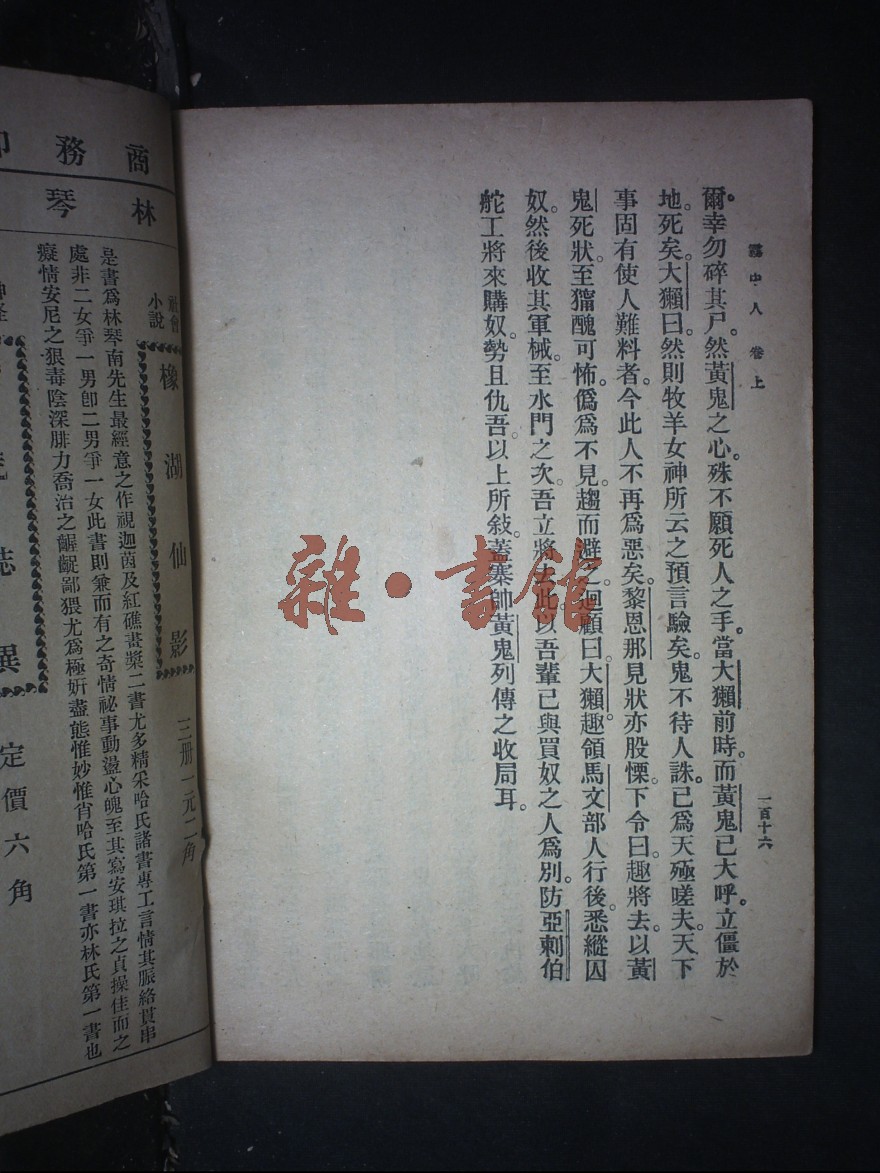 霧中人 卷上
一百十六
爾。幸勿碎其尸。然黃鬼之心。殊不願死人之手。當大獺前時。而黃鬼已大呼。立僵於
地。死矣。大獺曰。然則牧羊女神所云之預言驗矣。鬼不待人誅。已為天殛。嗟夫。天下
事固有使人難料者。今此人不再為惡矣。黎恩那見狀亦股慄。下令曰。趣將去。以黃
鬼死狀。至獰醜可怖。僞為不見。趨而避之。迴顧曰。大獺。趣領馬文部人行後。悉縱囚
奴。然後收其軍械。至水門之次。吾立將去此。以吾輩已與買奴之人為別。防亞剌伯
舵工將來購奴。勢且仇吾。以上所敍。蓋寨帥黃鬼列傳之收局耳。
雜·書館
商務印
林琴
社會小說
橡湖仙影
三册一元二角
是書爲林琴南先生最經意之作視迦茵及紅礁畫槳二書尤多精采哈氏諸書專工言情其脈絡貫串
處非二女爭一男卽二男爭一女此書則兼而有之奇情祕事動盪心魄至其寫安琪拉之貞操佳而之
癡情安尼之狠毒陰深腓力喬治之齷齪鄙猥尤爲極姸盡態惟妙惟肖哈氏第一書亦林氏第一書也
定價六角